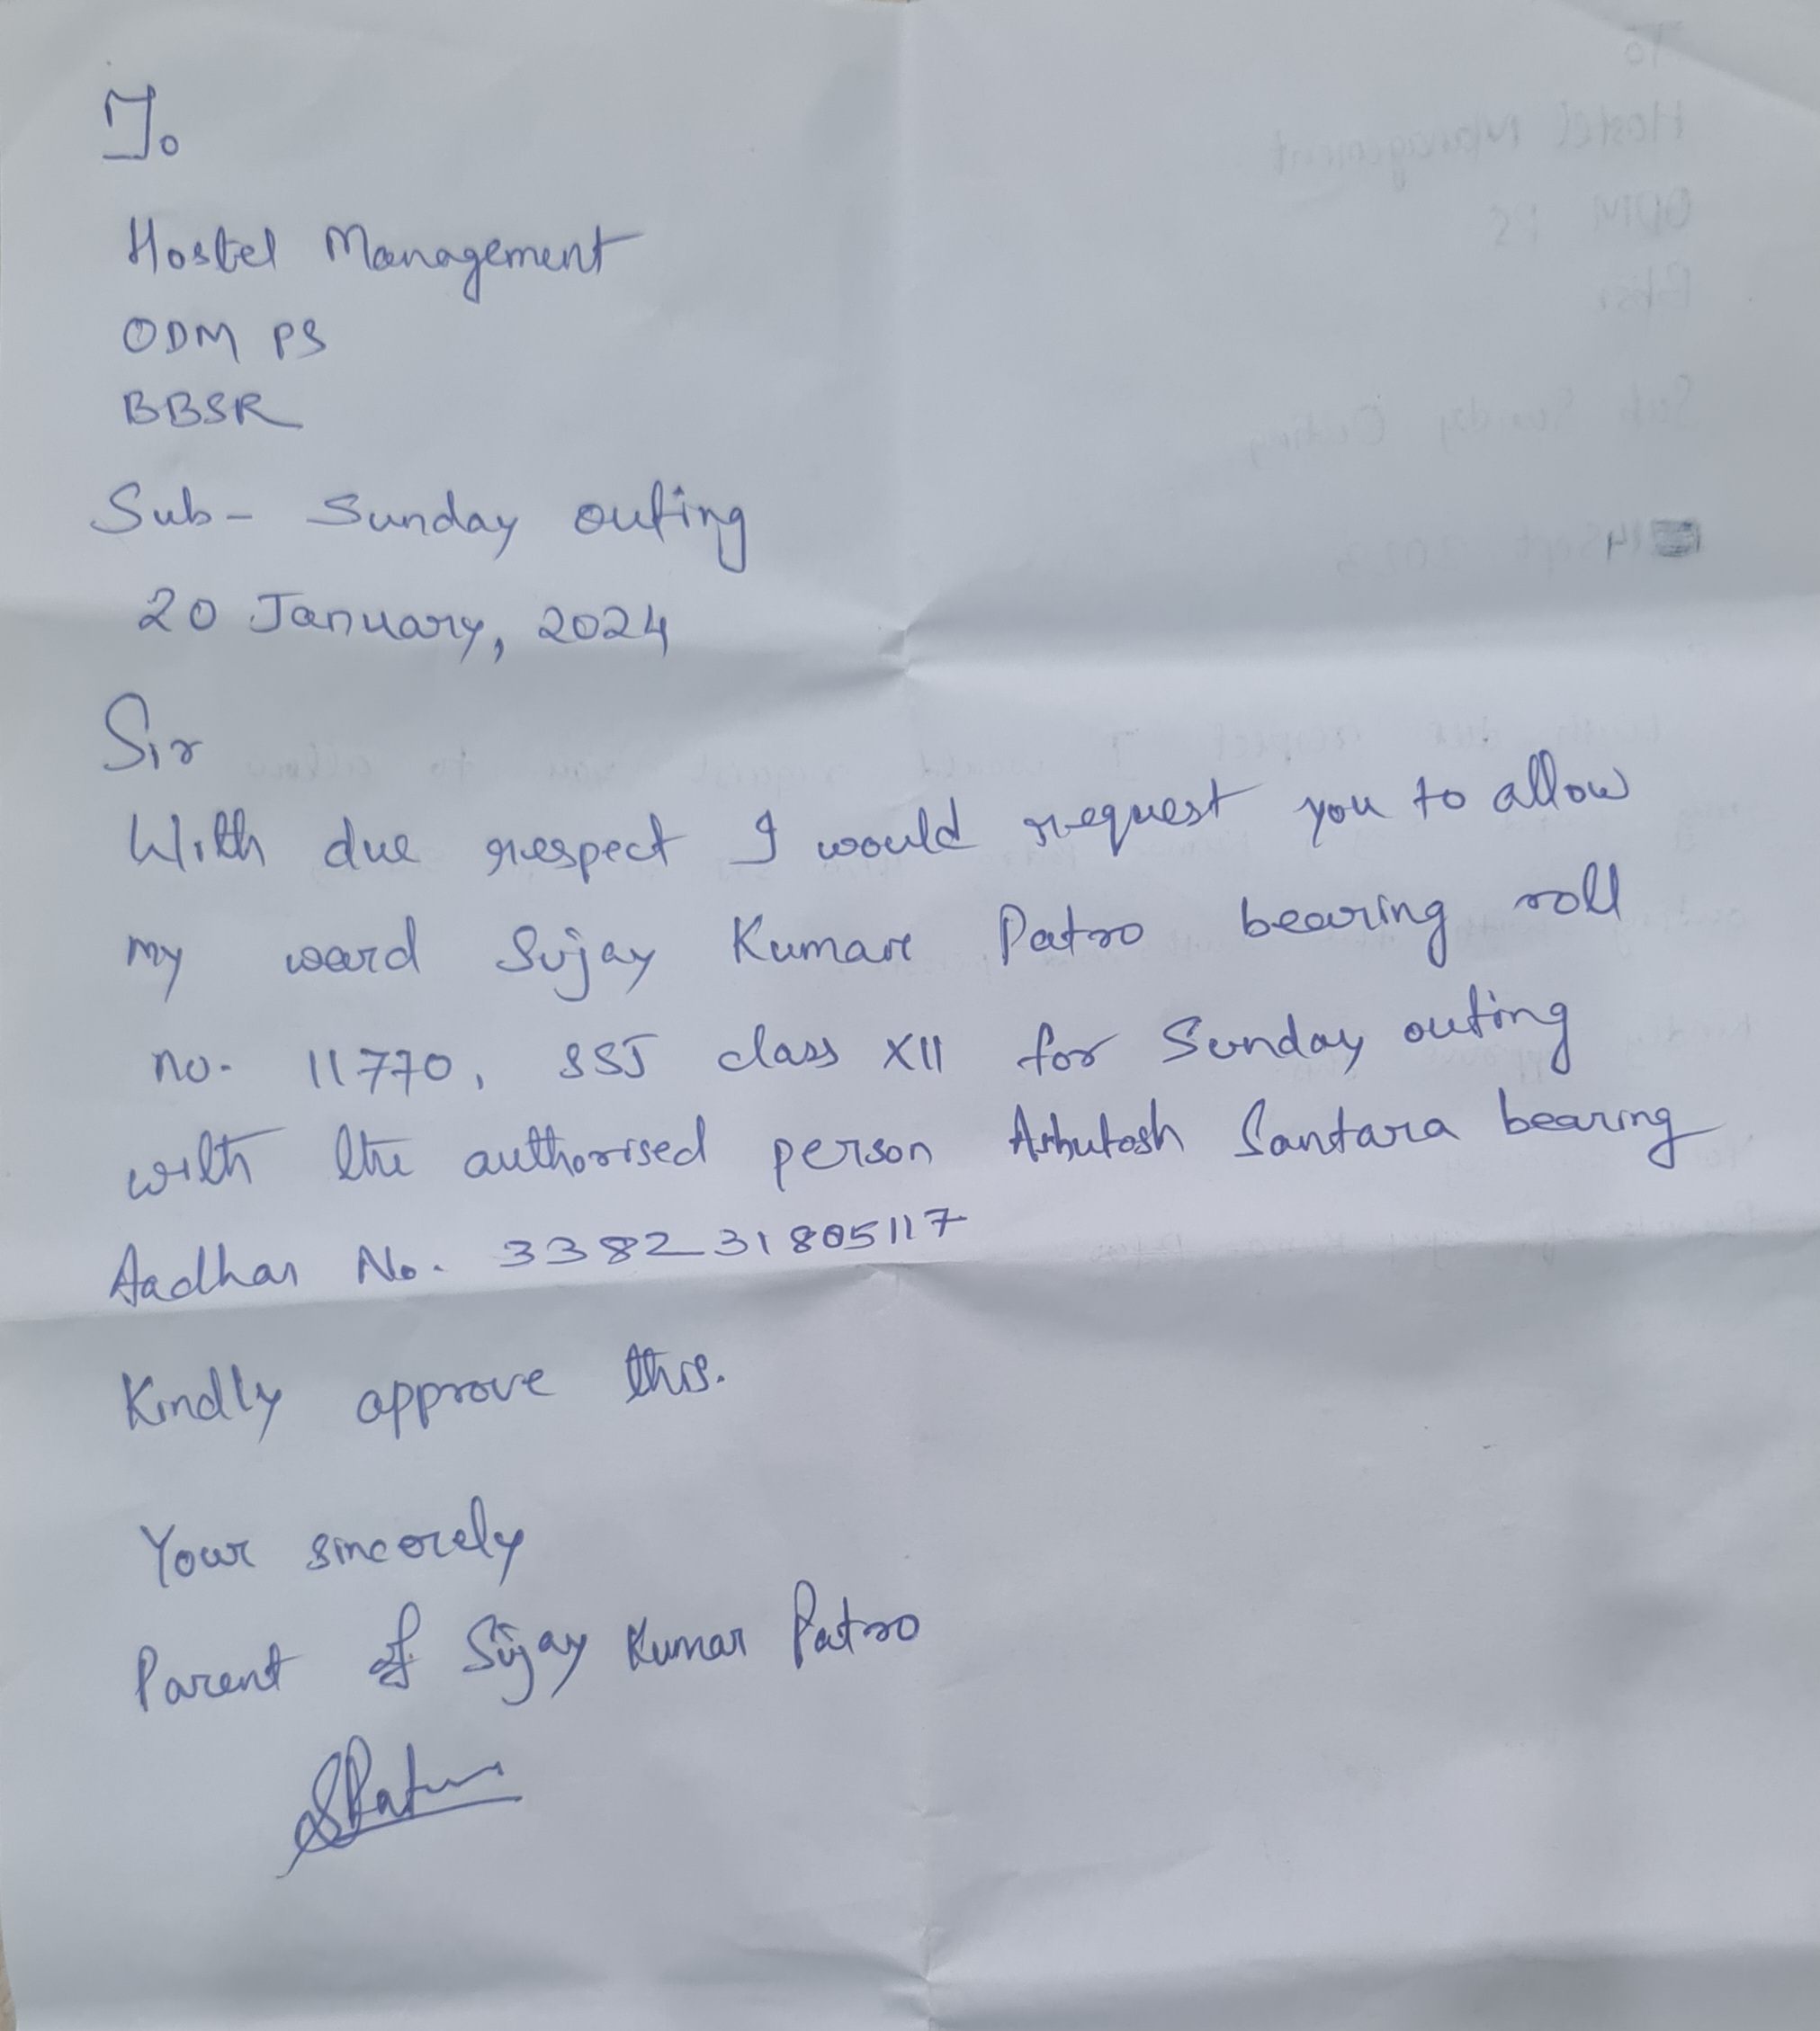 To
Hostel Management
ODM PS
BBSR
Sub- Sunday outing
20 January, 2024
Sir
With due respect I would request you to allow
my ward Sujay Kumar Patro bearing roll
no. 11770, SSJ class XII for Sunday outing
with the authorised person Ashutosh Santara bearing
Aadhar No. 338231805117
Kindly approve this.
Your sincerely
Parent of Sujay Kumar Patro
SPatro